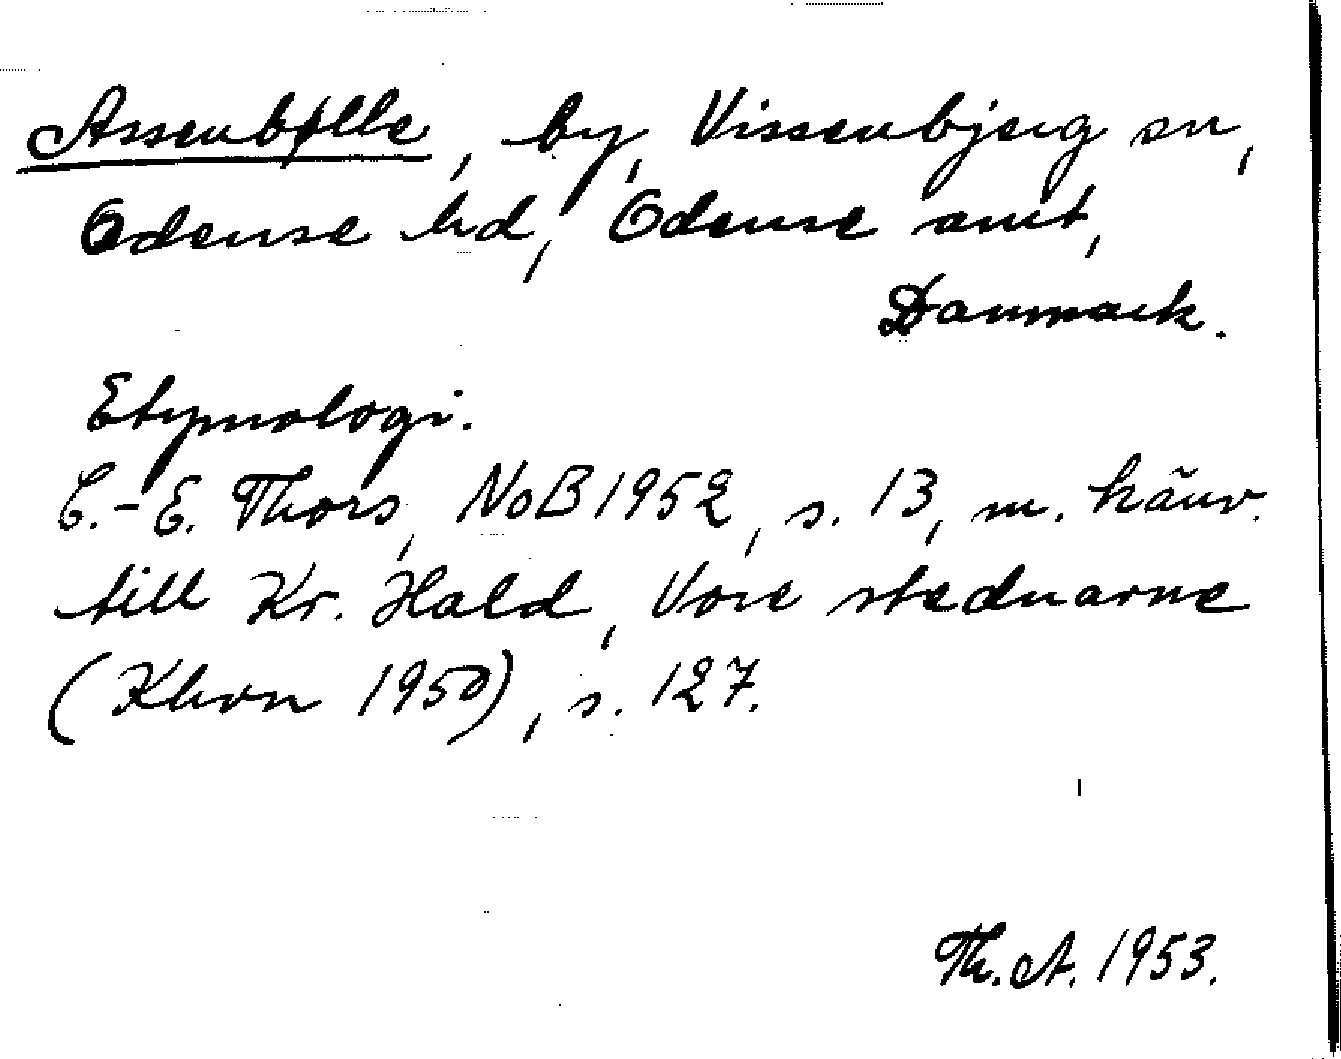 Assenbølle, by, Vissenbjerg sn,
Odense hd, Odense amt,
Danmark.
Etymologi.
C.-E. Thors, NoB 1952, s. 13, m. hänv.
till Kr. Hald, Vore stednavne
(Khvn 1950), s. 127.
Th. A. 1953.